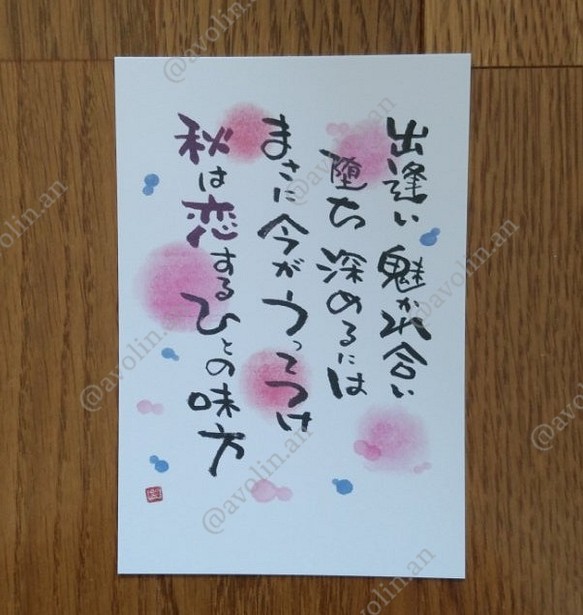 出逢い 魅かれ合い
堕ち 深めるには
まさに今がうってつけ
秋は恋するひとの味方
@avolin.an
@avolin.an
@avolin.an
@avolin.an
@avolin.an
@avolin.an
@avolin.an
@avolin.an
@avolin.an